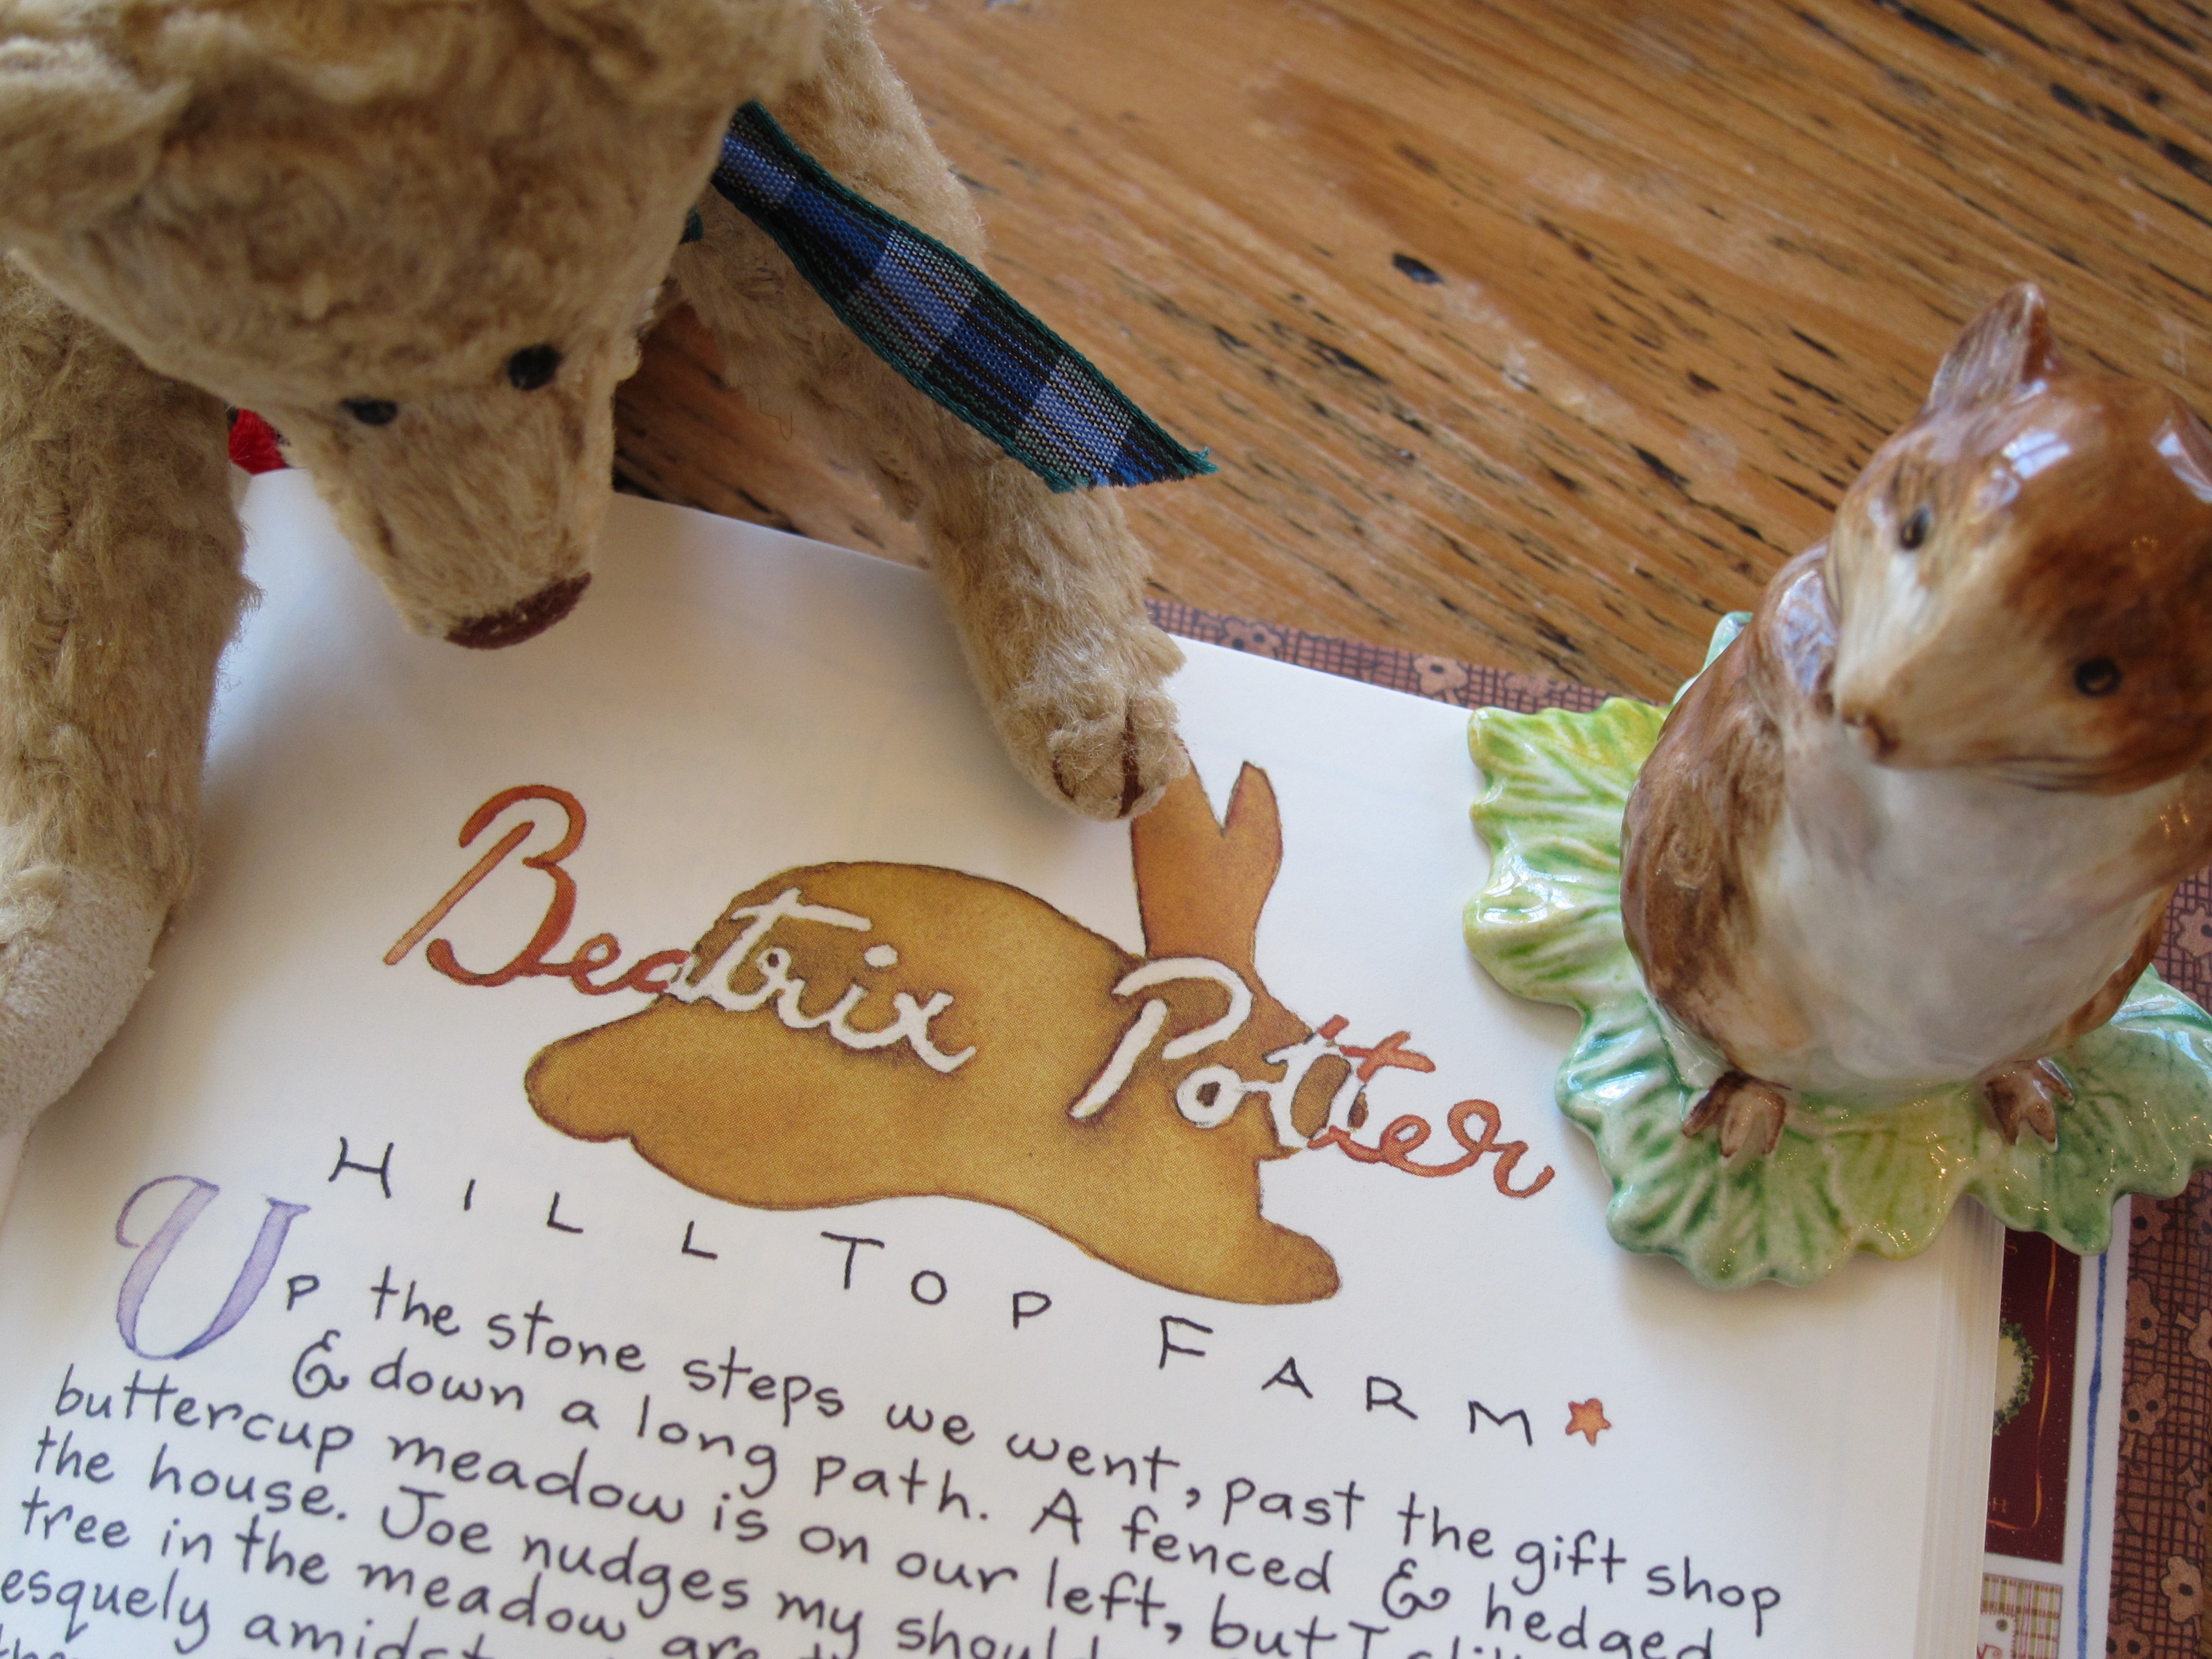 Beatrix Potter
HILL TOP FARM
Up the stone steps we went, past the gift shop
& down a long path. A fenced & hedged
buttercup meadow is on our left, but I
the house. Joe nudges my
tree in the meadow are
esquely amidst